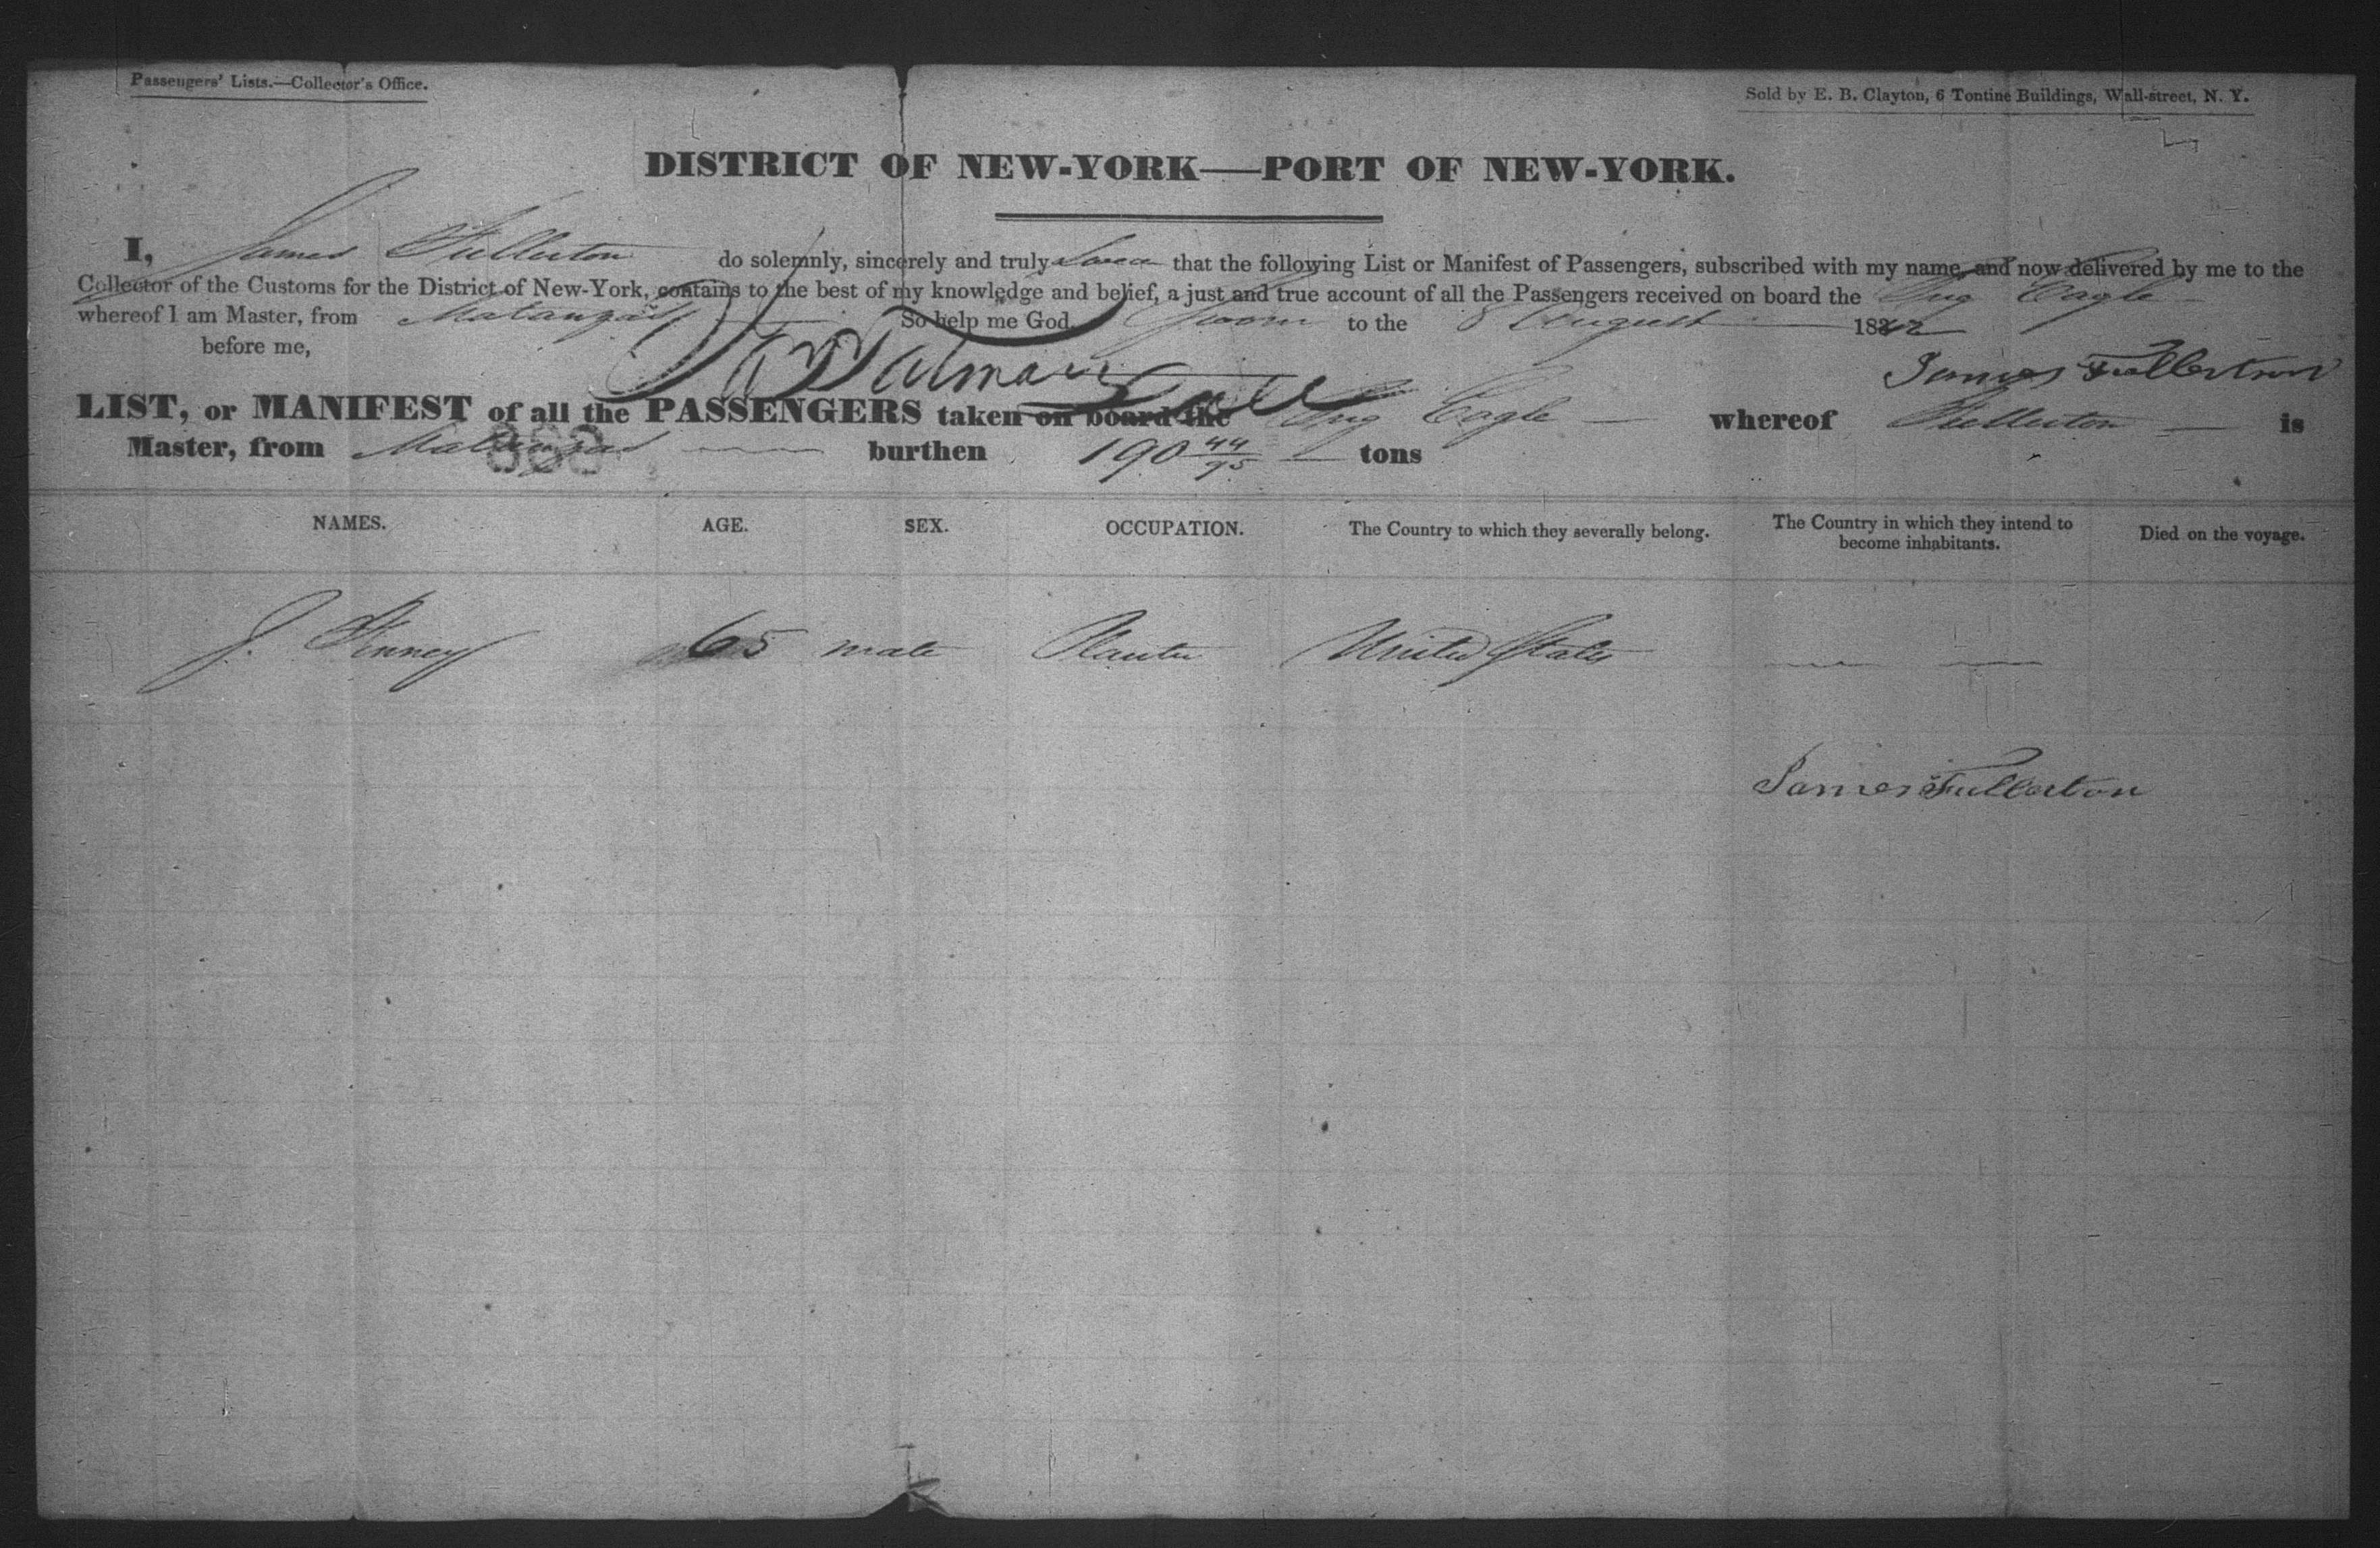 Passengers' Lists.—Collector's Office.
Sold by E. B. Clayton, 6 Tontine Buildings, Wall-street, N. Y.
DISTRICT OF NEW-YORK—PORT OF NEW-YORK.
I, James Fullerton do solemnly, sincerely and truly Swear that the following List or Manifest of Passengers, subscribed with my name, and now delivered by me to the
Collector of the Customs for the District of New-York, contains to the best of my knowledge and belief, a just and true account of all the Passengers received on board the Brig Eagle
whereof I am Master, from Matanzas So help me God. Sworn to the 8 August 1842
before me,
James Fullerton
LIST, or MANIFEST of all the PASSENGERS taken on board the Brig Eagle whereof Fullerton is
Master, from Matanzas burthen 190 44/95 tons
NAMES. AGE. SEX. OCCUPATION. The Country to which they severally belong. The Country in which they intend to become inhabitants. Died on the voyage.
J. 65 male Planter United States
James Fullerton